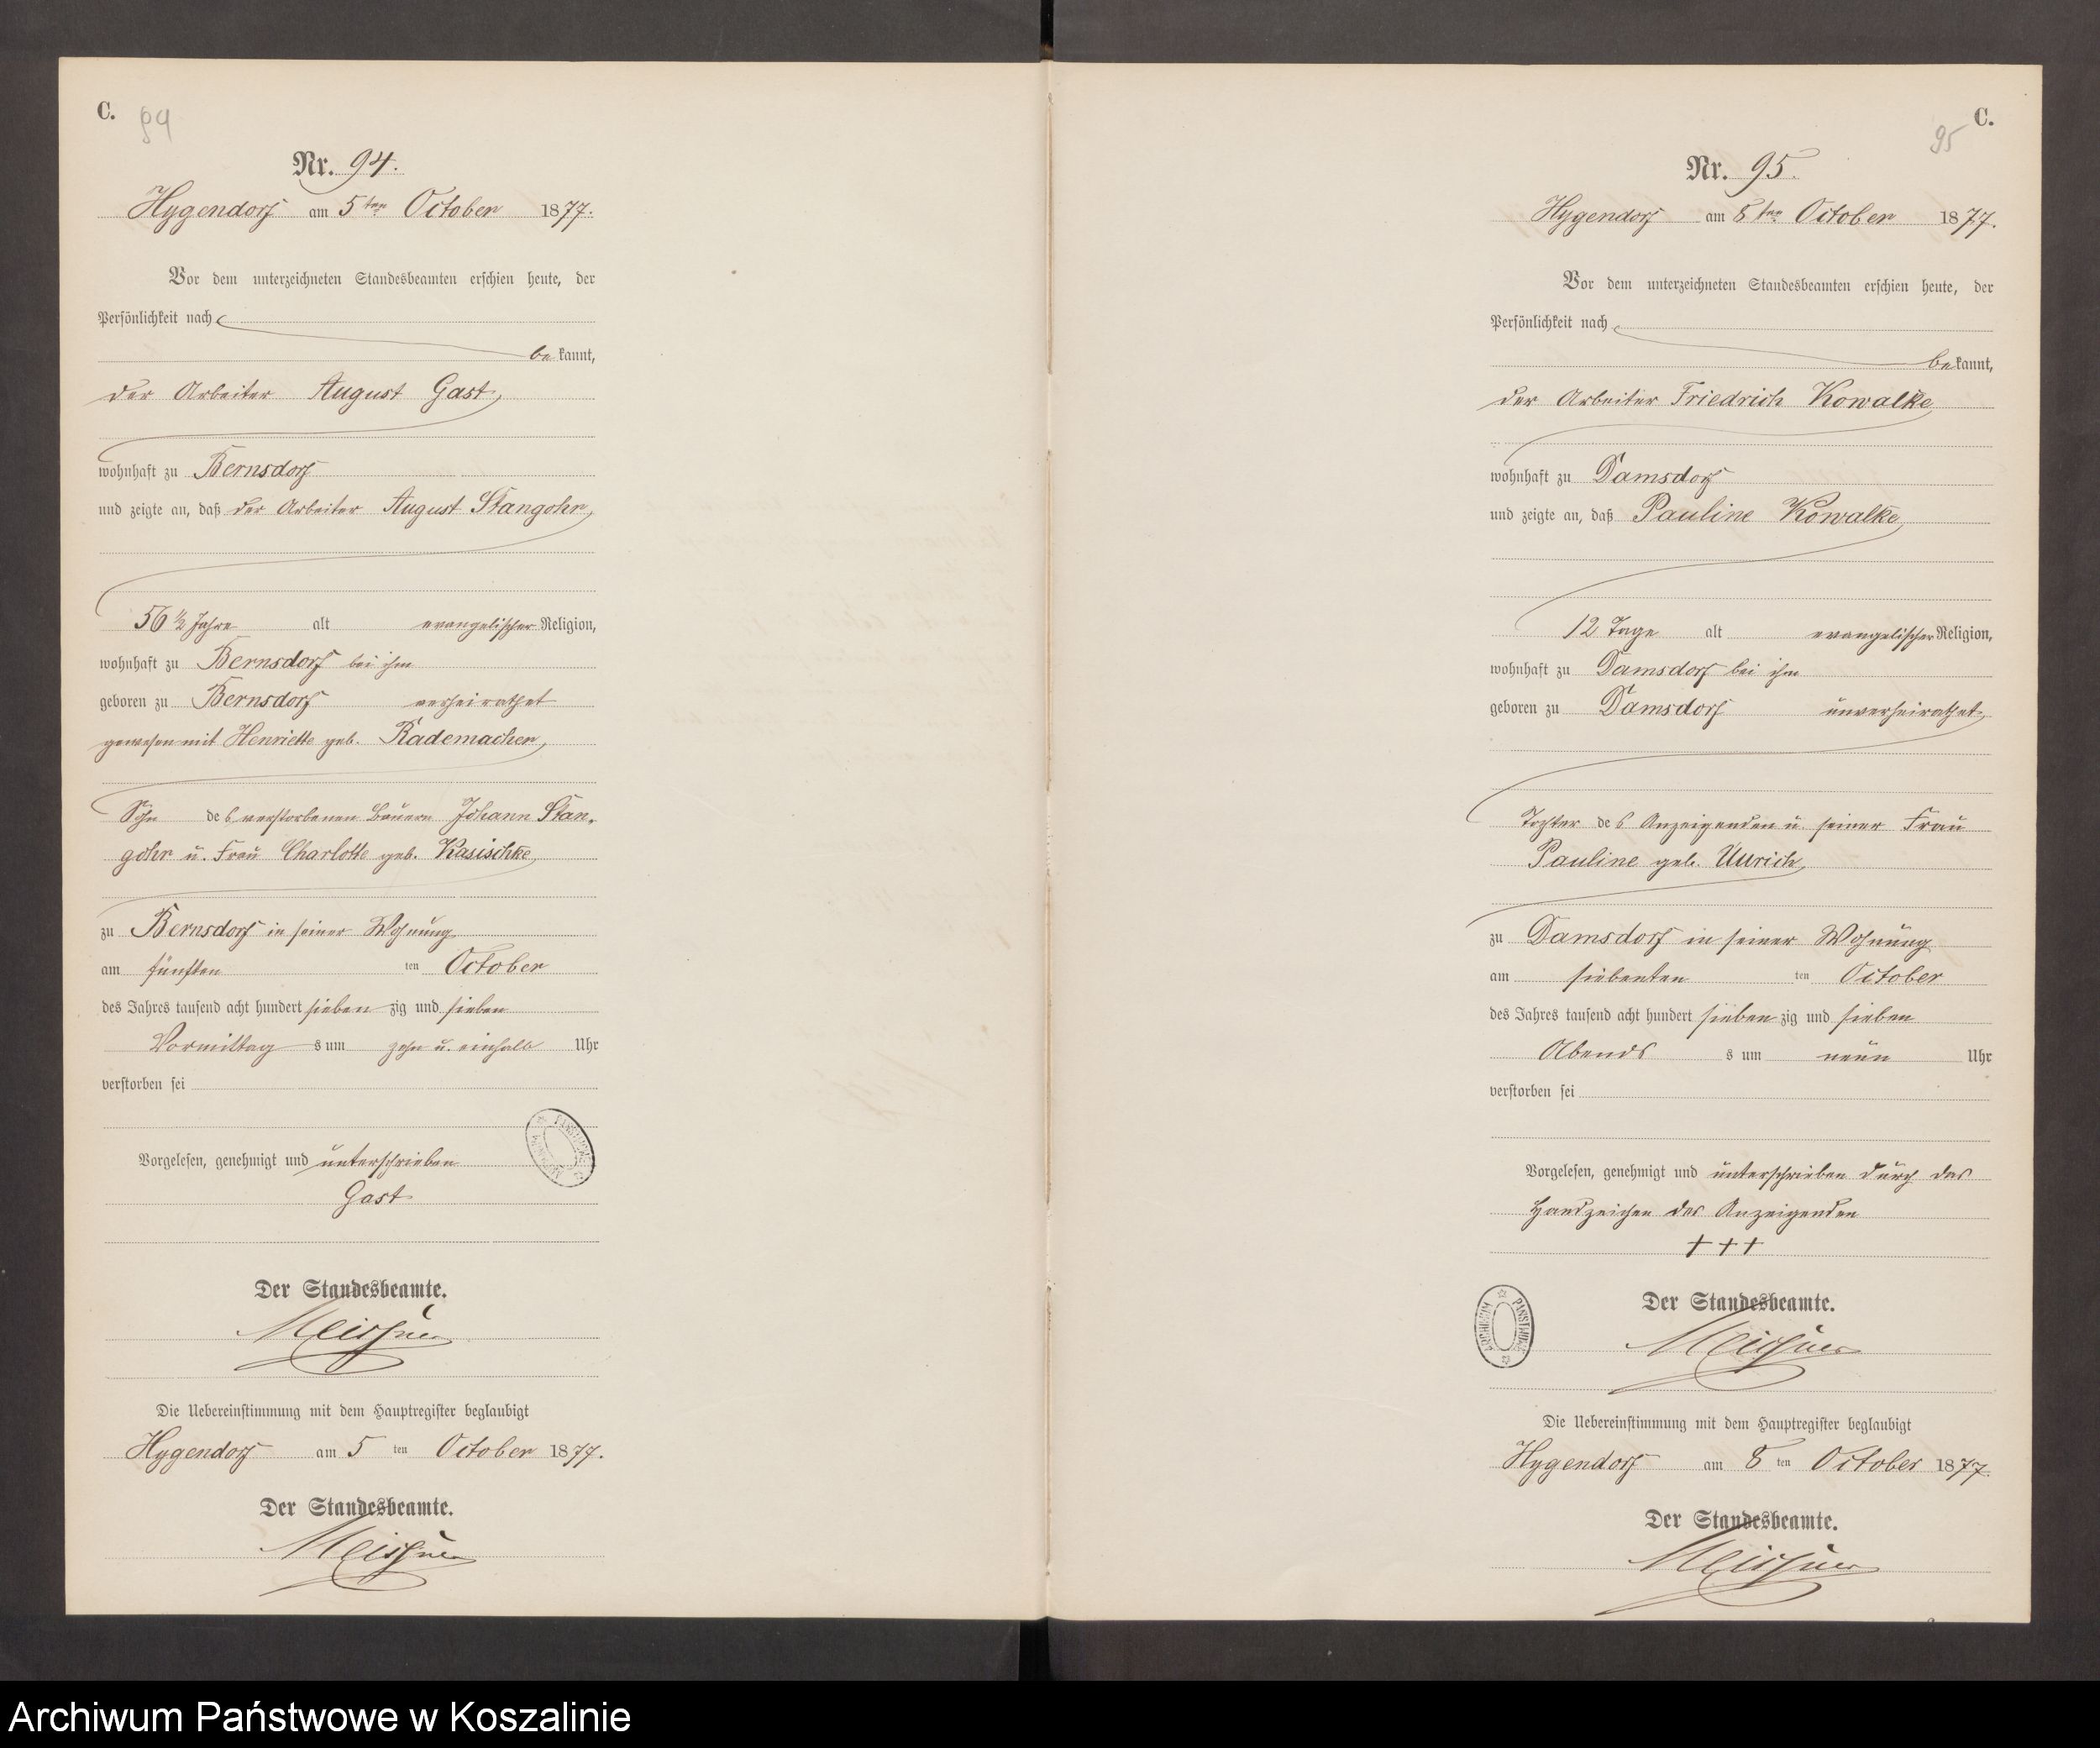 C.
94
Nr. 94.
Hygendorf am 5ten October 1877.
Vor dem unterzeichneten Standesbeamten erschien heute, der
Persönlichkeit nach
bekannt,
der Arbeiter August Gast,
wohnhaft zu Bernsdorf
und zeigte an, daß der Arbeiter August Stangohr,
56 ½ Jahre alt evangelischer Religion,
wohnhaft zu Bernsdorf bei ihm
geboren zu Bernsdorf verheirathet
gewesen mit Henriette geb. Rademacher,
Sohn des verstorbenen Bauern Johann Stan-
gohr u. Frau Charlotte geb. Kasischke,
zu Bernsdorf in seiner Wohnung
am fünften ten October
des Jahres tausend acht hundert siebenzig und sieben
Vormittags um zehn u. einhalb Uhr
verstorben sei
Vorgelesen, genehmigt und unterschrieben
Gast
Der Standesbeamte.
Meissner
Die Uebereinstimmung mit dem Hauptregister beglaubigt
Hygendorf am 5 ten October 1877.
Der Standesbeamte.
Meissner
C.
95
Nr. 95.
Hygendorf am 8ten October 1877.
Vor dem unterzeichneten Standesbeamten erschien heute, der
Persönlichkeit nach
bekannt,
der Arbeiter Friedrich Kowalke
wohnhaft zu Damsdorf
und zeigte an, daß Pauline Kowalke,
12 Tage alt evangelischer Religion,
wohnhaft zu Damsdorf bei ihm
geboren zu Damsdorf unverheirathet,
Tochter des Anzeigenden u. seiner Frau
Pauline geb. Ullrich,
zu Damsdorf in seiner Wohnung
am siebenten ten October
des Jahres tausend acht hundert siebenzig und sieben
Abends um neun Uhr
verstorben sei
Vorgelesen, genehmigt und unterschrieben durch das
Handzeichen des Anzeigenden
+++
ARCHIWUM PAŃSTWOWE
Der Standesbeamte.
Meissner
Die Uebereinstimmung mit dem Hauptregister beglaubigt
Hygendorf am 8 ten October 1877.
Der Standesbeamte.
Meissner
Archiwum Państwowe w Koszalinie